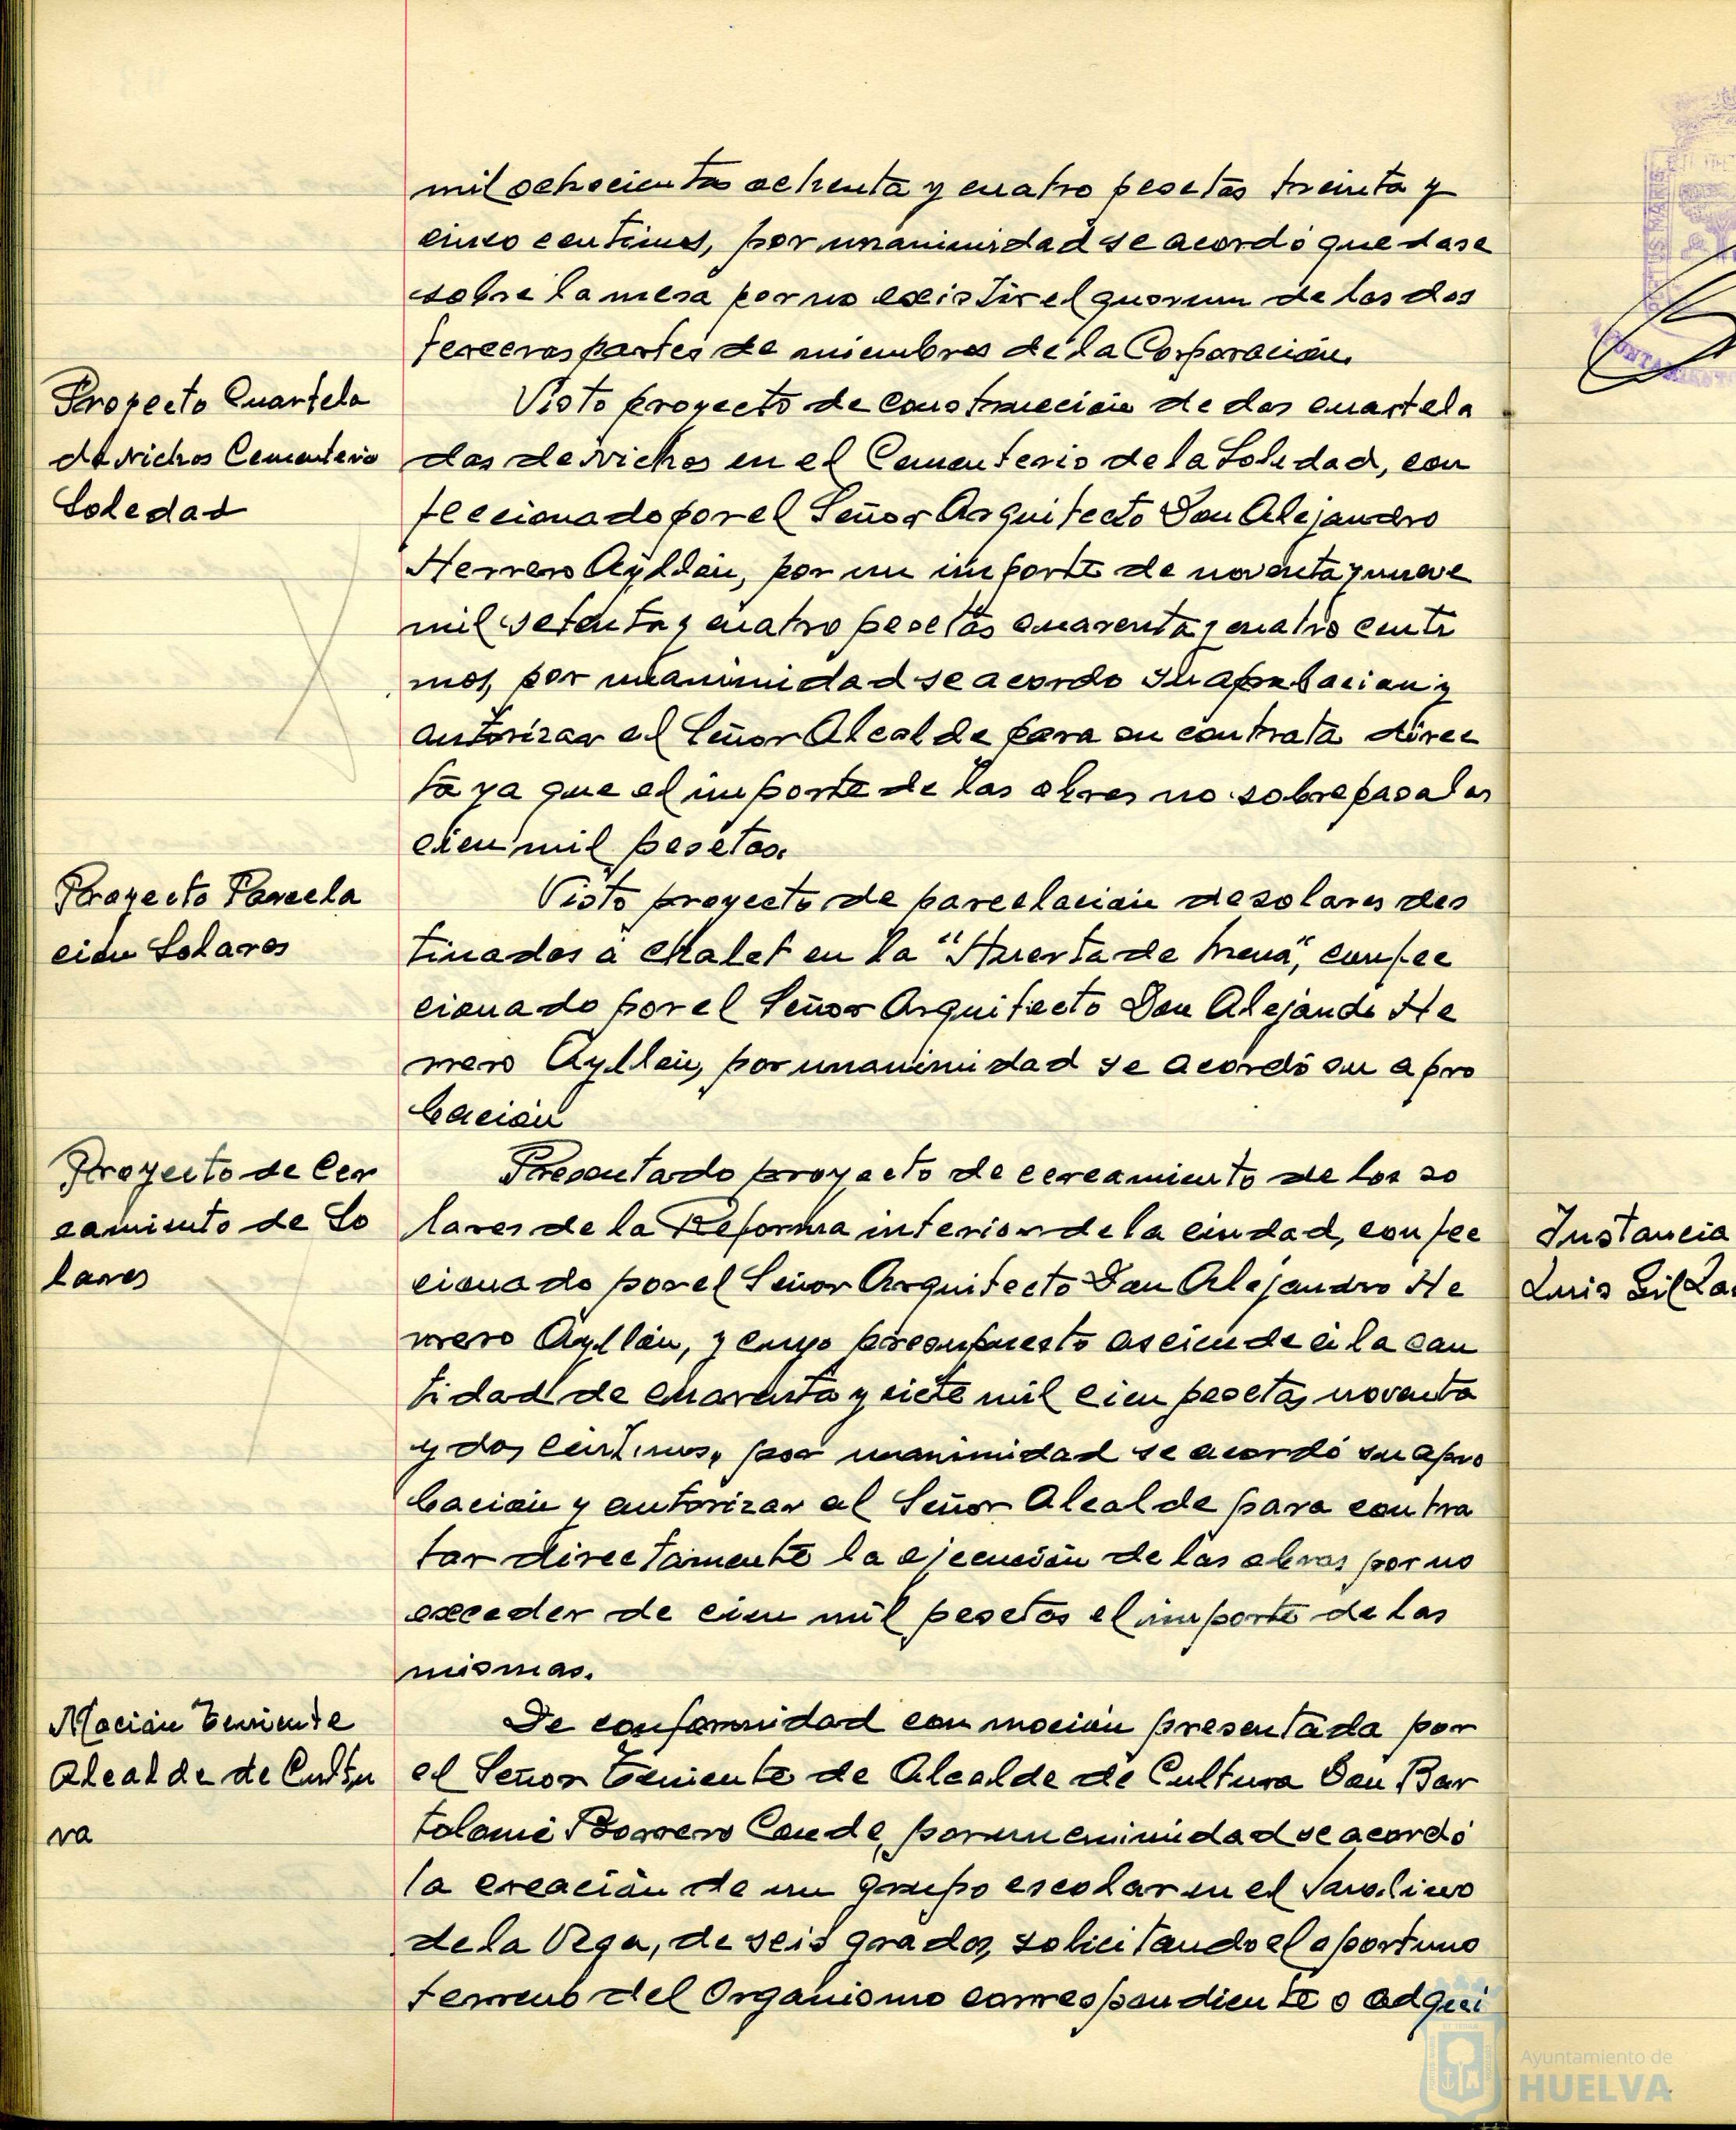 mil ochocientas ochenta y cuatro pesetas treinta y
cinco centimos, por unanimidad se acordó quedase
sobre la mesa por no existir el quorum de las dos
terceras partes de miembros de la Corporación.
Proyecto Cuartela
de nichos Cementerio
Soledad
Visto proyecto de construcción de dos cuartela
das de nichos en el Cementerio de la Soledad, con
feccionado por el Señor Arquitecto Don Alejandro
Herrero Ayllón, por un importe de noventa y nueve
mil setenta y cuatro pesetas cuarenta y cuatro centi
mos, por unanimidad se acordo su aprobacion y
autorizar al Señor Alcalde para su contrata direc
ta ya que el importe de las obras no sobrepasa las
cien mil pesetas.
Proyecto Parcela
ción Solares
Visto proyecto de parcelación de solares des
tinados a chalet en la "Huerta de Mena", confec
cionado por el Señor Arquitecto Don Alejando He
rrero Ayllón, por unanimidad se acordó su apro
bación
Proyecto de Cer
camiento de So
lares
Presentado proyecto de cercamiento de los so
lares de la Reforma interior de la ciudad, confec
cionado por el Señor Arquitecto Don Alejandro He
rrero Ayllón, y cuyo presupuesto asciende a la can
tidad de cuarenta y siete mil cien pesetas noventa
y dos centimos, por unanimidad se acordó su apro
bación y autorizar al Señor Alcalde para contra
tar directamente la ejecución de las obras por no
exceder de cien mil pesetas el importe de las
mismas.
Moción Teniente
Alcalde de Cultu
ra
De conformidad con moción presentada por
el Señor Teniente de Alcalde de Cultura Don Bar
tolomé Borrero Conde, por unanimidad se acordó
la creación de un grupo escolar en el
de la Vega, de seis grados, solicitando el oportuno
terreno del Organismo correspondiente o adqui
Instancia
Luis Gil
Ayuntamiento de
HUELVA